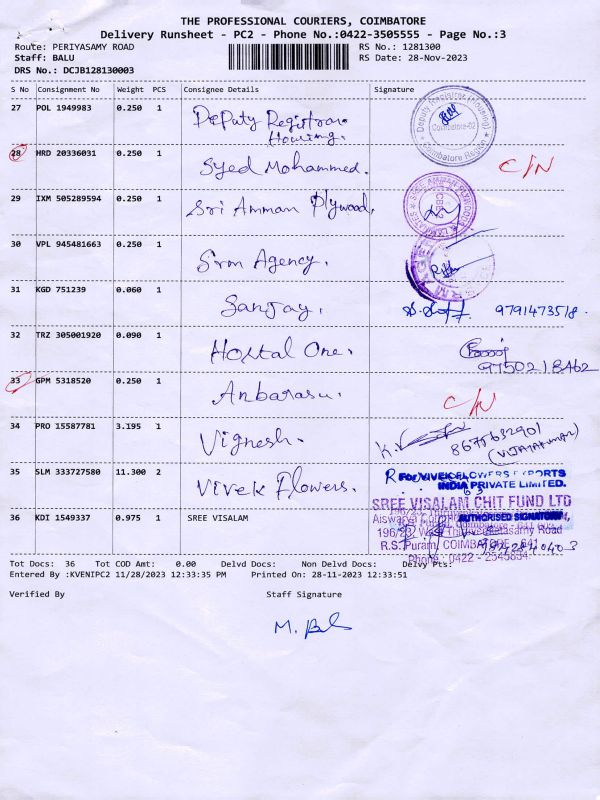 THE PROFESSIONAL COURIERS, COIMBATORE
Delivery Runsheet - PC2 - Phone No.:0422-3505555 - Page No.:3
Route: PERIYASAMY ROAD RS No.: 1281300
Staff: BALU RS Date: 28-Nov-2023
DRS No.: DCJB128130003
S No Consignment No Weight PCS Consignee Details Signature
27 POL 1949983 0.250 1 Deputy Registrar
Housing.
Deputy Registrar (Housing)
Coimbatore-02
Coimbatore Region
28 HRD 20336031 0.250 1 Syed Mohammed. C/N
29 IXM 505289594 0.250 1 Sri Amman Plywood,
SREE AMMAN PLYWOODS &
CBE-2
30 VPL 945481663 0.250 1 Srm Agency.
31 KGD 751239 0.060 1 Sanjay. 9791473518.
32 TRZ 305001920 0.090 1 Hostal One.
9750218462
33 GPM 5318520 0.250 1 Anbarasu. C/N
34 PRO 15587781 3.195 1 Vignesh. 8677632901
(VIJAYAKUMAR)
35 SLM 333727580 11.300 2 Vivek Flowers.
For VIVEK FLOWERS EXPORTS
INDIA PRIVATE LIMITED.
36 KDI 1549337 0.975 1 SREE VISALAM
SREE VISALAM CHIT FUND LTD
AUTHORISED SIGNATORY
R.S. Puram, COIMBATORE - 641
Phone : 0422 -
Tot Docs: 36 Tot COD Amt: 0.00 Delvd Docs: Non Delvd Docs: Delvy Pts:
Entered By :KVENIPC2 11/28/2023 12:33:35 PM Printed On: 28-11-2023 12:33:51
Verified By Staff Signature
M. Bal